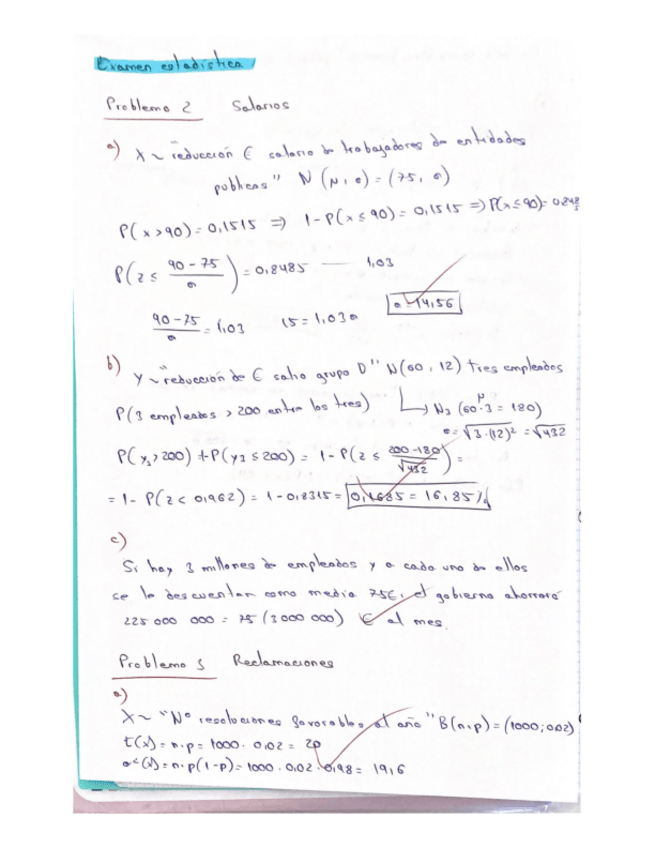 Examen estadística
Problema 2 Salarios
a) X ~ "reducción € salario de trabajadores de entidades
publicas" N (μ, σ) = (75, σ)
P(x>90) = 0,1515 ⇒ 1-P(x ≤ 90) = 0,1515 ⇒ P(x≤90)= 0,848
P(z ≤ (90-75)/σ) = 0,8485 — 1,03
(90-75)/σ = 1,03 15 = 1,03σ σ=14,56
b) Y ~ "reducción de € salrio grupo D" N(60, 12) tres empleados
P(3 empleados > 200 entre los tres) ↳ N3 (60·3 = 180)
μ
σ = √3·(12)² = √432
P(Y3>200) = 1-P(Y3 ≤ 200) = 1-P(z ≤ (200-180)/√432) =
= 1- P(z < 0,962) = 1-0,8315= 0,1685 = 16,85%
c)
Si hay 3 millones de empleados y a cada uno de ellos
se le descuentan como media 75€, el gobierno ahorrará
225 000 000 = 75 (3 000 000) € al mes.
Problema 3 Reclamaciones
a)
X ~ "Nº resoluciones favorables al año" B(n,p) = (1000; 0,02)
E(x) = n·p = 1000 · 0,02 = 20
σ²(x) = n·p(1-p) = 1000 · 0,02 · 0,98 = 19,6